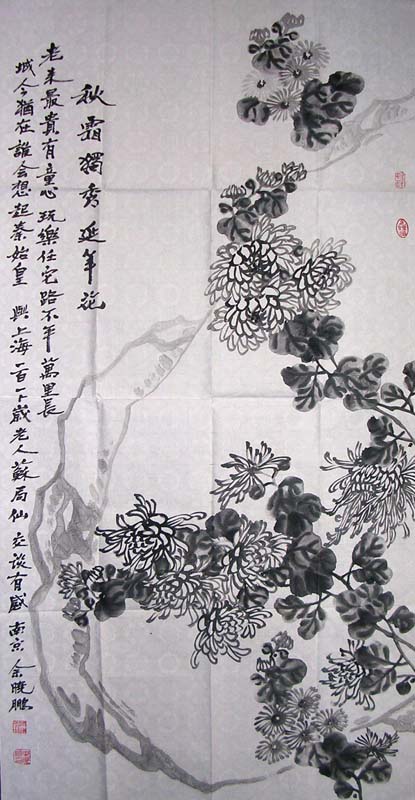 秋霜獨秀延年花
老来最貴有童心玩樂任它路不平萬里長
城今猶在誰會想起秦始皇 與上海一百一十歲老人蘇局仙交談有感 南京 余曉鵬